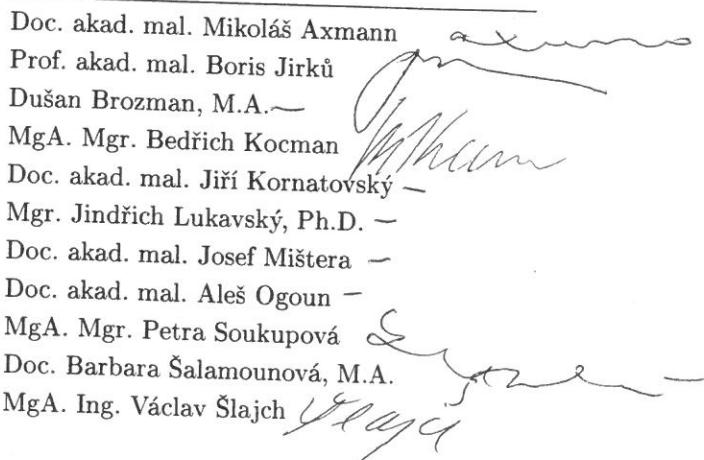 Doc. akad. mal. Mikoláš Axmann
Prof. akad. mal. Boris Jirků
Dušan Brozman, M.A. —
MgA. Mgr. Bedřich Kocman
Doc. akad. mal. Jiří Kornatovský —
Mgr. Jindřich Lukavský, Ph.D. —
Doc. akad. mal. Josef Mištera —
Doc. akad. mal. Aleš Ogoun —
MgA. Mgr. Petra Soukupová
Doc. Barbara Šalamounová, M.A.
MgA. Ing. Václav Šlajch